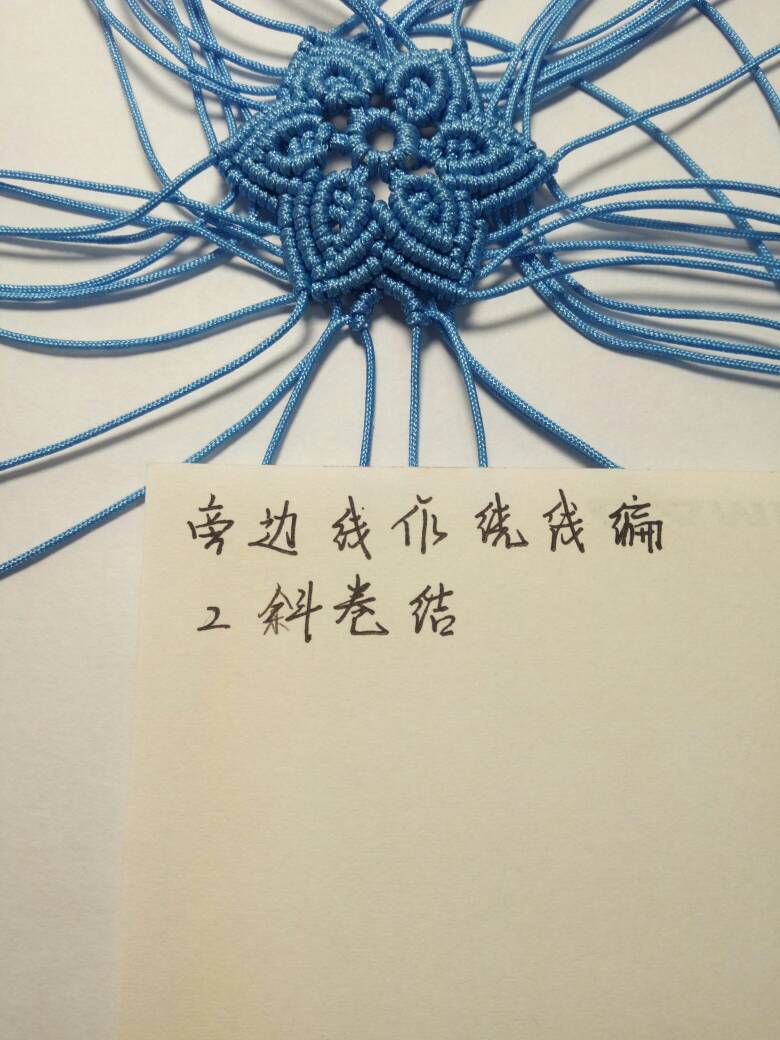 旁边线作绕线编
2斜卷结